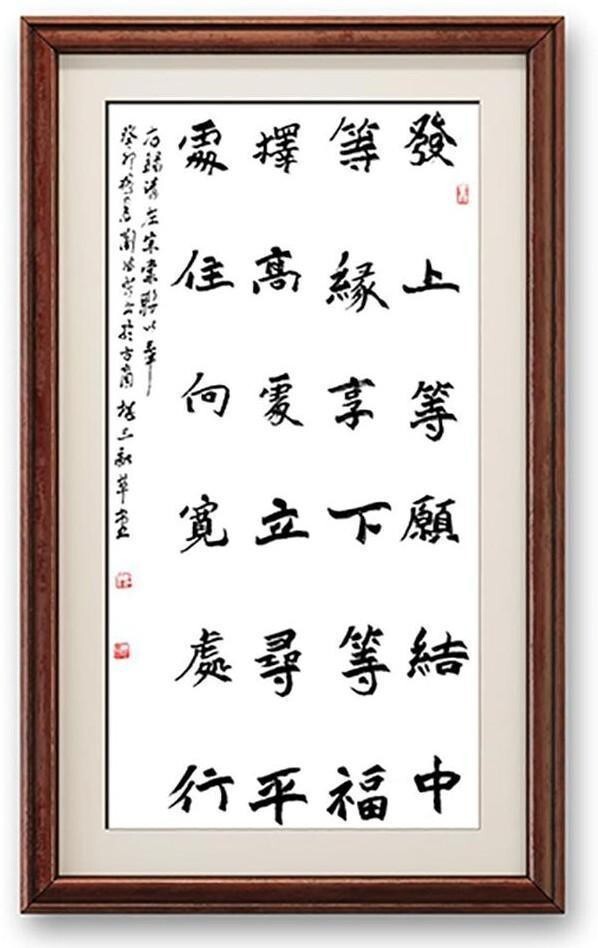 發上等願結中
等緣享下等福
擇高處立尋平
處住向寬處行
右錄清左宗棠聯以奉
癸卯